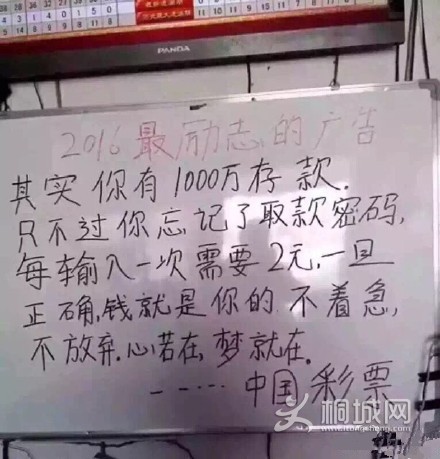 PANDA
2016最励志的广告
其实你有1000万存款.
只不过你忘记了取款密码,
每输入一次需要2元,一旦
正确,钱就是你的 不着急,
不放弃.心若在,梦就在.
-----中国彩票
桐城网